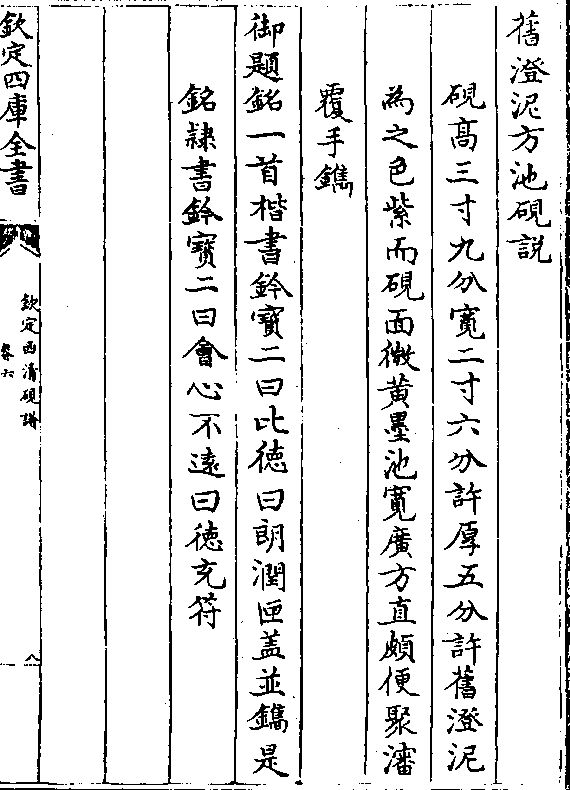 舊澄泥方池硯説
硯髙三寸九分寛二寸六分許厚五分許舊澄泥
為之色紫而硯面微黄墨池寛廣方直頗便聚瀋
覆手鐫
御題銘一首楷書鈐寳二曰比徳曰朗潤匣盖並鐫是
銘隷書鈐寳二曰會心不逺曰徳充符
欽定四庫全書
欽定西清硯譜
卷六
八